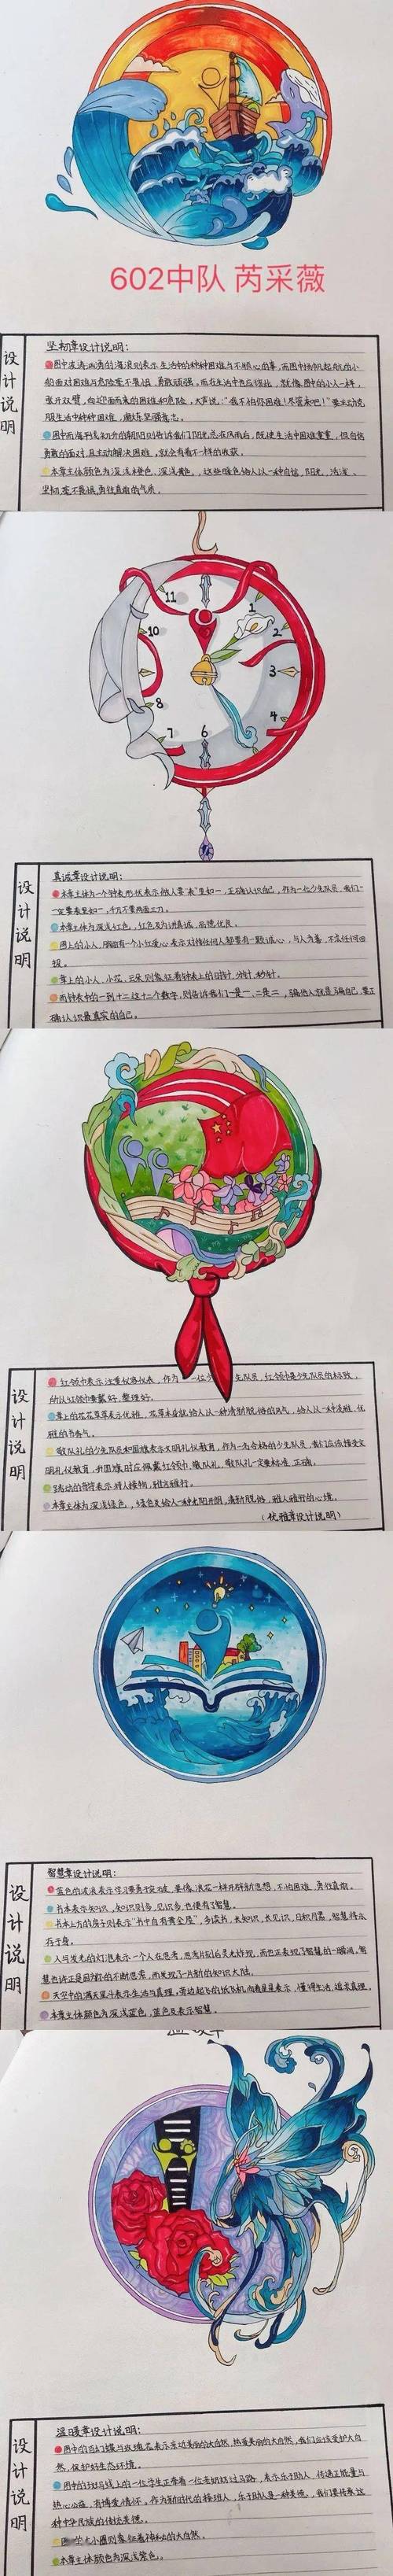 602中队 芮采薇
设计说明
坚韧章设计说明:
图中波涛汹涌的海浪则表示生活中的种种困难与不顺心的事,而图中扬帆起航的小
船面对困难与危险毫不畏惧,勇敢顽强。而在生活中也应如此,就像图中的小人一样,
张开双臂,向迎面而来的困难和危险,大声说:“我不怕你困难!尽管来吧!”要主动克
服生活中种种困难,磨炼坚强意志。
图中而海平线初升的朝阳则告诉我们阳光总在风雨后,既使生活中困难重重,但自信
勇敢的面对,且主动解决困难,就会有着不一样的收获。
本章主体颜色为深浅橙色、深浅黄色,这些暖色给人以一种自信、阳光、活泼、
坚韧、毫不畏惧、勇往直前的气质。
11
1
10
2
3
8
4
7
6
设计说明
真诚章设计说明:
本章主体为一个钟表形状表示做人要“表”里如一,正确认识自己,作为一位少先队员,我们一
定要表里如一,千万不要两面三刀。
本章主体为深浅红色,红色更为讲真诚,品德优良。
图上的小人,胸前有一个红爱心,表示对待任何人都要有一颗诚心,与人为善,不求任何回
报。
章上的小人、小花、云朵则象征着钟表上的时针、分针、秒针。
而钟表中的一到十二这十二个数字,则告诉我们一是一、二是二,骗他人就是骗自己,要正
确认识最真实的自己。
设计说明
红领巾表示注重仪容仪表,作为一位少先队员,红领巾是少先队员的标致,
所以红领巾要戴好,整理好。
章上的花花草草表示优雅,花草本身就给人以一种清新脱俗的风气,给人以一种淡雅、优
雅的书香气。
敬队礼的少先队员和国旗表示文明礼仪教育,作为一名合格的少先队员,我们应该接受文
明礼仪教育,升国旗时应佩戴红领巾,敬队礼,敬队礼一定要标准、正确。
跳动的音符表示待人接物,雅言雅行。
本章主体为深浅绿色,绿色更给人一种光阳开朗,清新脱俗,雅人雅行的心境。
(优雅章设计说明)
设计说明
智慧章设计说明:
蓝色的波浪表示学习要勇于突破,要像浪花一样开辟新思想,不怕困难,勇往直前。
书本表示知识,知识则多,见识多,也便有了智慧。
书本上方的房子则表示“书中自有黄金屋”,多读书,长知识,长见识,日积月累,智慧将永
存于身。
人与发光的灯泡表示一个人在思考,思考片刻后灵光乍现,而也正表现了智慧的一瞬间,智
慧也许正是因我们的不断思考,而发现了一片新的知识大陆。
天空中的满天星斗表示生活与真理,旁边起飞的纸飞机向着星星表示,懂得生活、追求真理。
本章主体颜色为深浅蓝色,蓝色更表示智慧。
设计说明
温暖章设计说明:
图中的百幻蝶与玫瑰花表示亲近美丽的大自然,热爱美丽的大自然,我们应该爱护大自
然,保护好生态环境。
图中的斑马线上的一位学生正带着一位老奶奶过马路,表示乐于助人,传递正能量与
热心公益,有博爱情怀。作为新时代的接班人,乐于助人是一种美德,我们要传承这
种中华民族的传统美德。
本章主体颜色为深浅紫色。